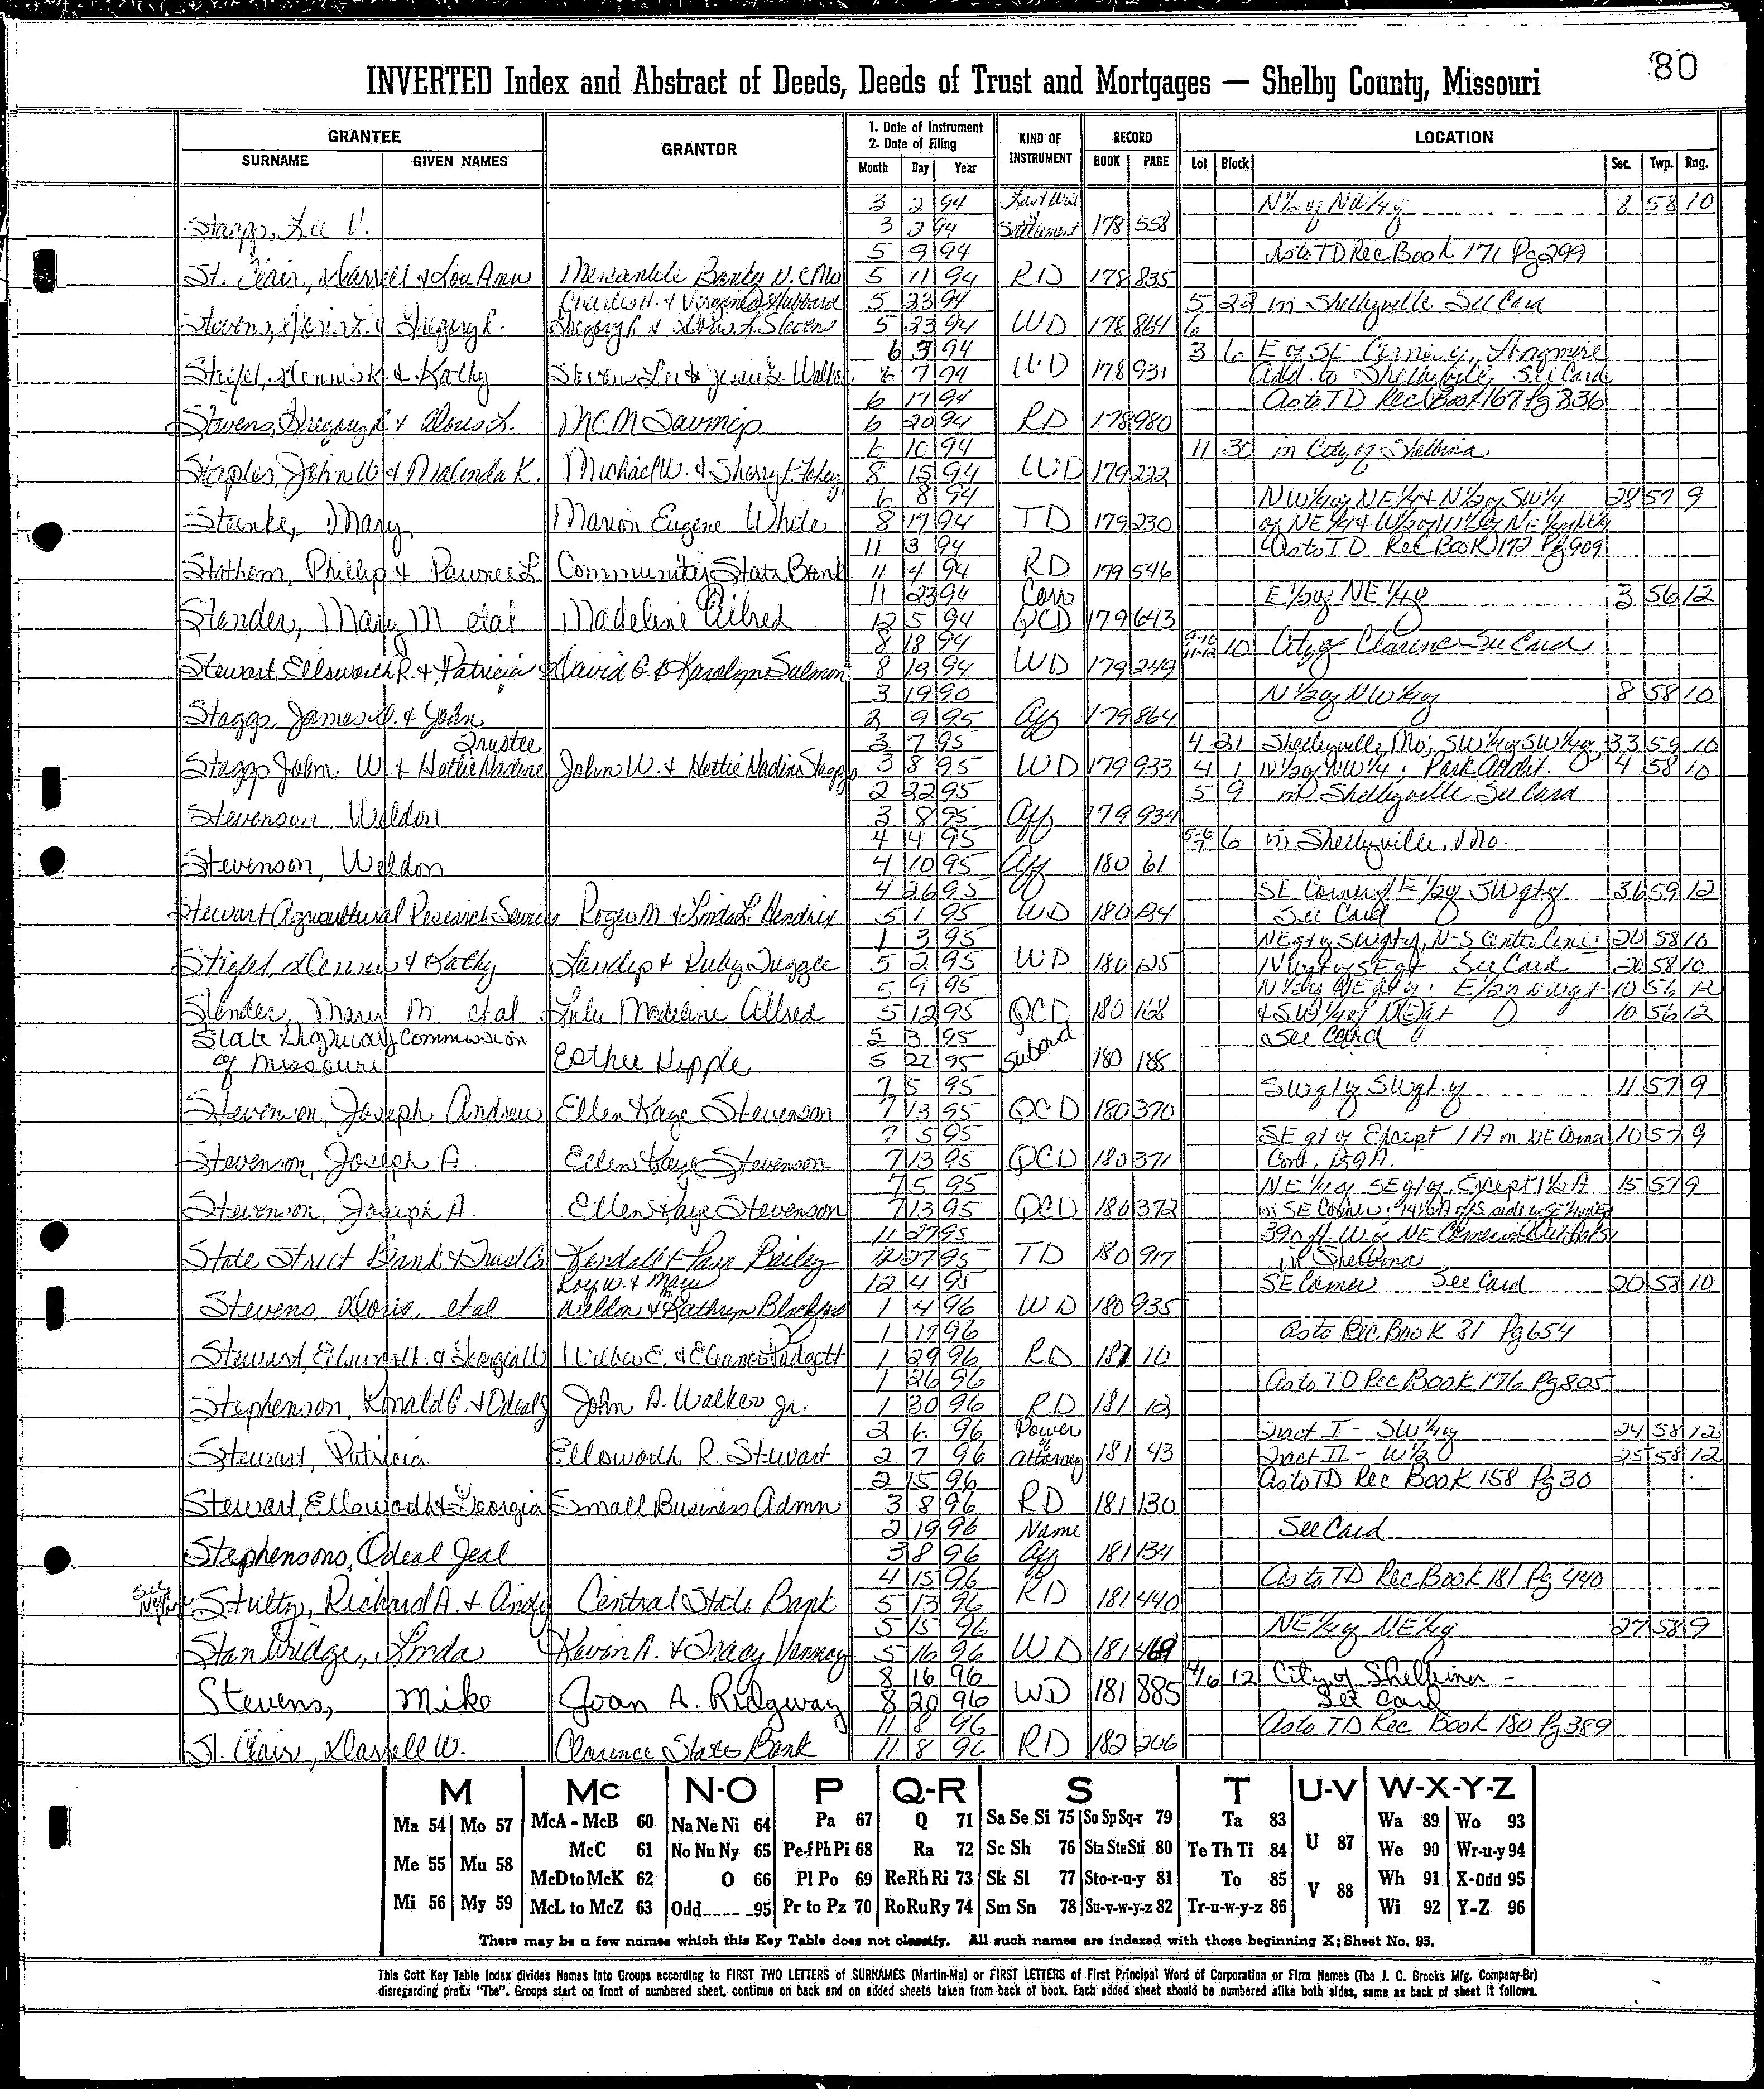 80
INVERTED Index and Abstract of Deeds, Deeds of Trust and Mortgages — Shelby County, Missouri
GRANTEE
SURNAME GIVEN NAMES
GRANTOR
1. Date of Instrument
2. Date of Filing
Month Day Year
KIND OF INSTRUMENT
RECORD
BOOK PAGE
LOCATION
Lot Block Sec. Twp. Rng.
3 2 94 Last Will N½ of NW¼ of 8 58 10
Staggs, Lee V. 3 3 94 Settlement 178 558
5 9 94 As to TD Rec Book 171 Pg 299
St. Clair, Darrell & Lou Ann Mercantile Bank of N.C. Mo 5 11 94 RD 178 835
Charles H. & Virginia Hubbard 5 23 94 5 22 in Shelbyville See Card
Stevens, Doris L. & Gregory R. Gregory R & Doris L. Stevens 5 23 94 WD 178 864 6
6 3 94 3 6 E of SE Corner of
Stiefel, Dennis K. & Kathy 6 7 94 WD 178 931 Add. to Shelbyville See Card
6 17 94 As to TD Rec Book 167 Pg 836
Stevens, Gregory R & Doris L. MCM Savings 6 20 94 RD 178 980
6 10 94 11 30 in City of Shelbina
Staples, John W & Malinda K. Michael W. & Sherry F. 8 15 94 WD 179 222
6 8 94 NW¼ of NE¼ & N½ of SW¼ 28 57 9
Mary Marion Eugene White 8 17 94 TD 179 230 of NE¼ & W½ of
11 3 94 As to TD Rec Book 172 Pg 909
Stathem, Phillip & Pawnee L Community State Bank 11 4 94 RD 179 546
11 23 94 Corr E½ of NE¼ of 3 56 12
Stender, Mary M etal Madeline Allred 12 5 94 QCD 179 643
8 18 94 9-10 11-12 10 City of Clarence See Card
Stewart, Ellsworth R. & Patricia David G. & Karolyn Salmon 8 19 94 WD 179 249
3 19 90 N½ of NW¼ of 8 58 10
Staggs, James & John 2 9 95 Aff 179 864
Trustee 3 7 95 4 21 Shelbyville, Mo; SW¼ of SW¼ of 33 59 10
Staggs John W & Hettie Nadine John W. & Hettie Nadine Staggs 3 8 95 WD 179 933 4 1 N½ of NW¼; Park Addit. 4 58 10
2 22 95 5 9 in Shelbyville See Card
Stevenson, Weldon 3 8 95 Aff 179 934
4 4 95 5-6 7 6 in Shelbyville, Mo.
Stevenson, Weldon 4 10 95 Aff 180 61
4 26 95 SE Corner of E½ of SW qt of 36 59 12
Stewart Agricultural Research Services Roger M. & Linda L. Hendrix 5 1 95 WD 180 124 See Card
1 3 95 NE qt of SW qt of, N-S Centerline: 20 58 10
Stiefel, Dennis & Kathy Landis & Ruby Tuggle 5 2 95 WD 180 125 NW qt of SE qt See Card 20 58 10
5 9 95 N½ of NE qt of: E½ of NW qt 10 56 12
Stender, Mary M etal Lulu Madeline Allred 5 12 95 QCD 180 168 & SW¼ of NE qt 10 56 12
State Highway Commission 5 3 95 See Card
of Missouri Esther Hipple 5 22 95 Subord 180 185
7 5 95 SW qt of SW qt of 11 57 9
Stevenson, Joseph Andrew Ellen Kaye Stevenson 7 13 95 QCD 180 370
7 5 95 SE qt of Except 1 A in NE Corner 10 57 9
Stevenson, Joseph A. Ellen Kaye Stevenson 7 13 95 QCD 180 371 Cont. 159 A.
7 5 95 NE¼ of SE qt of, Except 1½ A 15 57 9
Stevenson, Joseph A. Ellen Kaye Stevenson 7 13 95 QCD 180 372 in SE Corner;
11 27 95 390 ft. W of NE Corner
State Street Bank & Trust Co Kendall & Pam Bailey 12 27 95 TD 180 917 in Shelbina
Roy W. & Mary 12 4 95 SE Corner See Card 20 58 10
Stevens Doris, etal Weldon & Kathryn Blackford 1 4 96 WD 180 935
1 17 96 As to Rec Book 81 Pg 654
Stewart, Ellsworth & Georgia Wilber E. & Eleanor Padgett 1 29 96 RD 181 10
1 26 96 As to TD Rec Book 176 Pg 805
Stephenson, Ronald C. & Odeal J John A. Walker Jr. 1 30 96 RD 181 12
2 6 96 Power Tract I - SW¼ of 24 58 12
Stewart, Patricia Ellsworth R. Stewart 2 7 96 of Attorney 181 43 Tract II - W½ 25 58 12
2 15 96 As to TD Rec Book 158 Pg 30
Stewart, Ellsworth & Georgia Small Business Admn 3 8 96 RD 181 130
2 19 96 Name See Card
Stephensons, Odeal Jeal 3 8 96 Aff 181 134
4 15 96 As to TD Rec Book 181 Pg 440
Stultz, Richard A. & Cindy Central State Bank 5 13 96 RD 181 440
5 15 96 NE¼ of NE¼ of 27 58 9
Stanbridge, Linda Kevin A. & Tracy Vannoy 5 16 96 WD 181 469
8 16 96 4/6 12 City of Shelbina -
Stevens, Mike Joan A. Ridgway 8 20 96 WD 181 885 See Card
11 8 96 As to TD Rec Book 180 Pg 389
St. Clair, Darrell W. Clarence State Bank 11 8 96 RD 182 206
M Mc N-O P Q-R S T U-V W-X-Y-Z
Ma 54 Mo 57 McA - McB 60 Na Ne Ni 64 Pa 67 Q 71 Sa Se Si 75 So Sp Sq-r 79 Ta 83 Wa 89 Wo 93
McC 61 No Nu Ny 65 Pe-f Ph Pi 68 Ra 72 Sc Sh 76 Sta Ste Sti 80 Te Th Ti 84 U 87 We 90 Wr-u-y 94
Me 55 Mu 58 McD to McK 62 O 66 Pl Po 69 Re Rh Ri 73 Sk Sl 77 Sto-r-u-y 81 To 85 V 88 Wh 91 X-Odd 95
Mi 56 My 59 McL to McZ 63 Odd-----95 Pr to Pz 70 Ro Ru Ry 74 Sm Sn 78 Su-v-w-y-z 82 Tr-u-w-y-z 86 Wi 92 Y-Z 96
There may be a few names which this Key Table does not classify. All such names are indexed with those beginning X; Sheet No. 95.
This Cott Key Table Index divides Names into Groups according to FIRST TWO LETTERS of SURNAMES (Martin-Ma) or FIRST LETTERS of First Principal Word of Corporation or Firm Names (The J. C. Brooks Mfg. Company-Br)
disregarding prefix "The". Groups start on front of numbered sheet, continue on back and on added sheets taken from back of book. Each added sheet should be numbered alike both sides, same as back of sheet it follows.